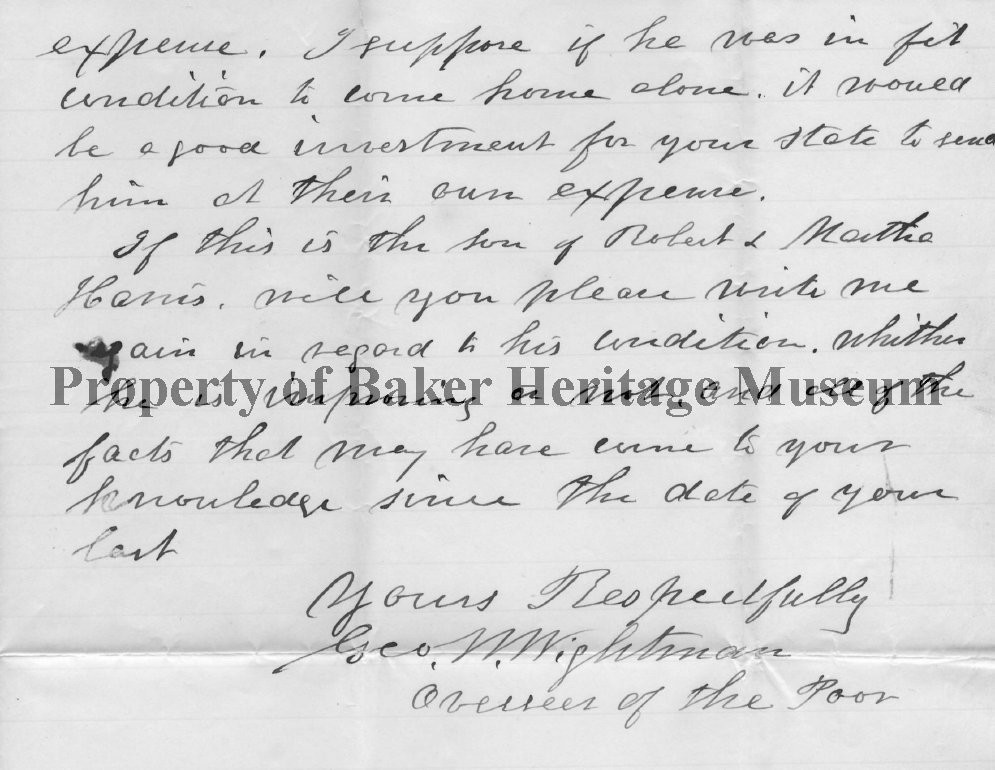 expense. I suppose if he was in fit
condition to come home alone. it would
be a good investment for your state to send
him at their own expense.
If this is the son of Robert & Martha
Harris. will you please write me
again in regard to his condition. whether
Property of Baker Heritage Museum
he is improving or not, and all of the
facts that may have come to your
knowledge since the date of your
last
Yours Respectfully
Geo. W. Wightman
Overseer of the Poor